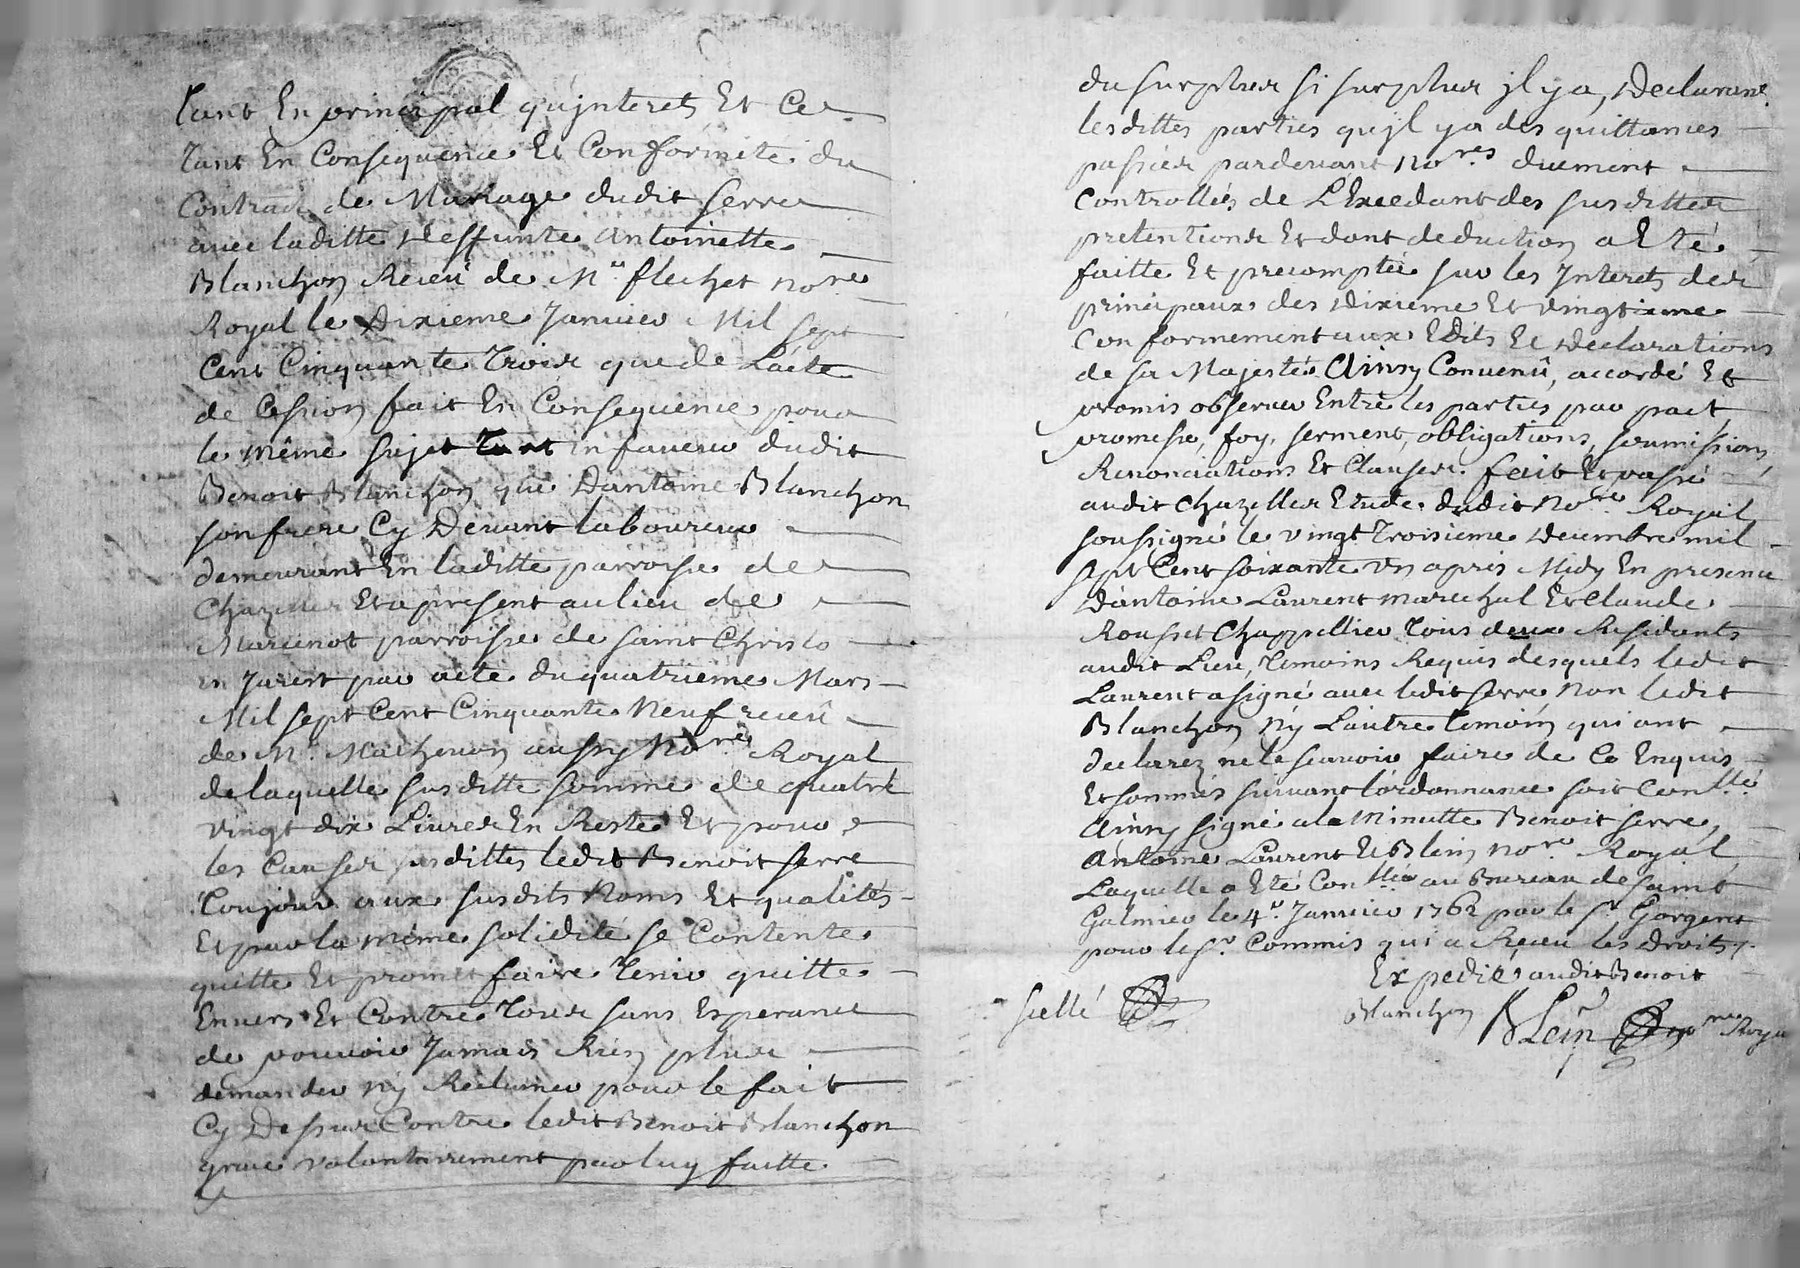 tant En principal qu'jnterets Et Ce
tant En Consequence Et Conformité du
Contract de Mariage dudit Serre
avec laditte deffunte Antoinette
Blanchon Receu de Me flechet nore
Royal le Dixieme Janvier Mil sept
Cent Cinquante Trois que de L'acte
de Cession fait En Consequence pour
le même sujet tant en faveur dudit
Benoit Blanchon que D'antoine Blanchon
son frere Cy Devant laboureur
demeurant En laditte parroisse de
Chazelles Et a present au lieu de
Marcenot parroisse de saint Christo
en Jarest par acte du quatrieme Mars
Mil sept Cent Cinquante Neuf receû
de Me Mathevon aussy Nore Royal
de laquelle susditte somme de quatre
vingt dix Livres En Reste Et pour
les Causes susdittes ledit Benoit Serre
Toujour aux susdits Noms Et qualités
Et par la même solidité se Contente
quitte Et promet faire tenir quitte
Envers Et Contre tous sans Esperance
de pouvoir Jamais Rien plus
demander ny Reclamer pour le fait
Cy Dessus Contre ledit Benoit Blanchon
grace volontairement par luy faitte
du surplus si surplus jl y a, Declarant
lesdittes parties qu'jl y a des quittances
passées pardevant Nores duement
Controllées de L'Excedant des susdittes
pretentions Et dont deduction a Eté
faitte Et precomptée sur les Interets des
principaux des dixieme Et vingtieme
Conformement aux Edits Et declarations
de sa Majesté Ainsy Convenû, accordé Et
promis observer Entre les parties par pact
promesse, foy, serment, obligations, soumissions,
Renonciations Et Clauses. fait Et passé
audit Chazelles Etude dudit Nore Royal
soussigné le vingt Troisieme decembre mil
sept Cent soixante Un apres Midy En presence
D'antoine Laurent marechal Et Claude
Rousset Chappellier tous deux Residants
audit Lieu, temoins Requis desquels ledit
Laurent a signé avec ledit Serre Non ledit
Blanchon Ny L'autre temoin qui ont
declarez ne le scavoir faire de Ce Enquis
Et sommés suivant l'ordonnance soit Conllé
Ainsy signé a la Minutte Benoit Serre,
Antoine Laurent Et Blein Nore Royal
Laquelle a Eté Conllée au Bureau de saint
Galmier le 4e Janvier 1762 par le Sr Gorgeret
pour le Sr Commis qui a Receu les droits
Expedié audit Benoit
scellé
Blanchon Blein nre Roya